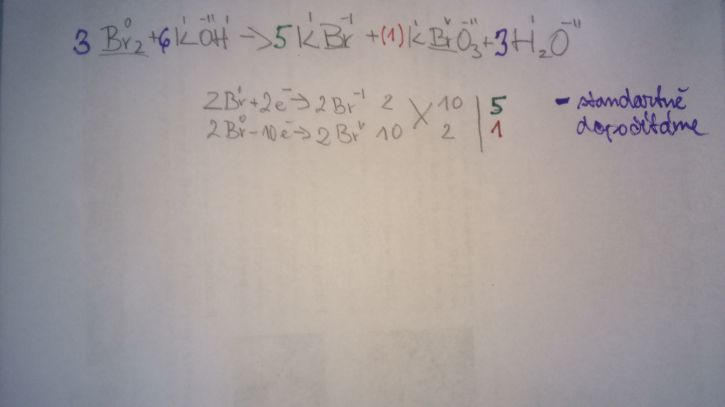 3 Br₂⁰ + 6 KᴵO⁻ᴵᴵHᴵ → 5 KᴵBr⁻ᴵ + (1) KᴵBrⱽO₃⁻ᴵᴵ + 3 H₂ᴵO⁻ᴵᴵ
2Br⁰ + 2e⁻ → 2Br⁻ᴵ 2 10 | 5
2Br⁰ - 10e⁻ → 2Brⱽ 10 2 | 1
- standartně
dopočítáme